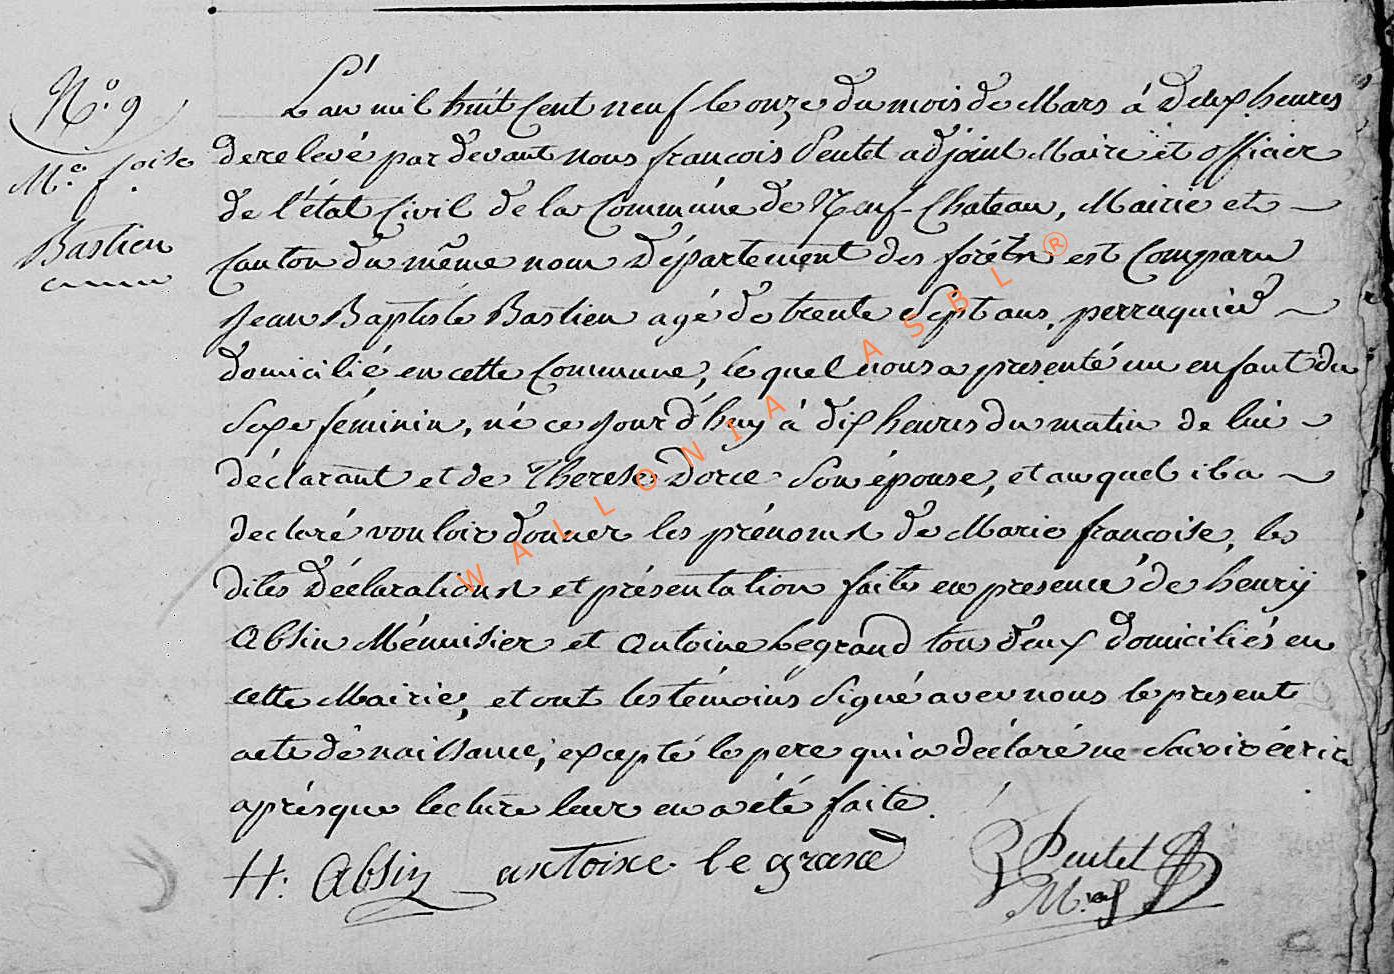 N.o 9
M.e f.oise
Bastien
L'an mil huit Cent neuf le onze du mois de Mars à Deux heures
de relevé par devant nous françois Pentel adjoint Maire et officier
de l'état Civil de la Commune de Neuf-Chateau, Mairie et
Canton du même nom Département des forêts est Comparu
Jean Baptiste Bastien agé de trente Sept ans, perruquier
domicilié en cette Commune, le quel nous a presenté un enfant du
Sexe féminin, né ce jourd'huy à dix heures du matin de lui
déclarant et de Therese Dorce Son épouse, et au quel il a
declaré vouloir donner les prénoms de Marie francoise, les
dites Déclarations et présentation faites en presence de henrÿ
Absin Ménuisier et Antoine Legrand tous d'eux domiciliés en
cette Mairie, et ont les témoins Signé avec nous le present
acte de naissance, excepté le pere qui a déclaré ne Savoir écrire
aprésque lecture leur en a été faite.
H. Absin antoine le grand Pentel
WALLONIA ASBL ®